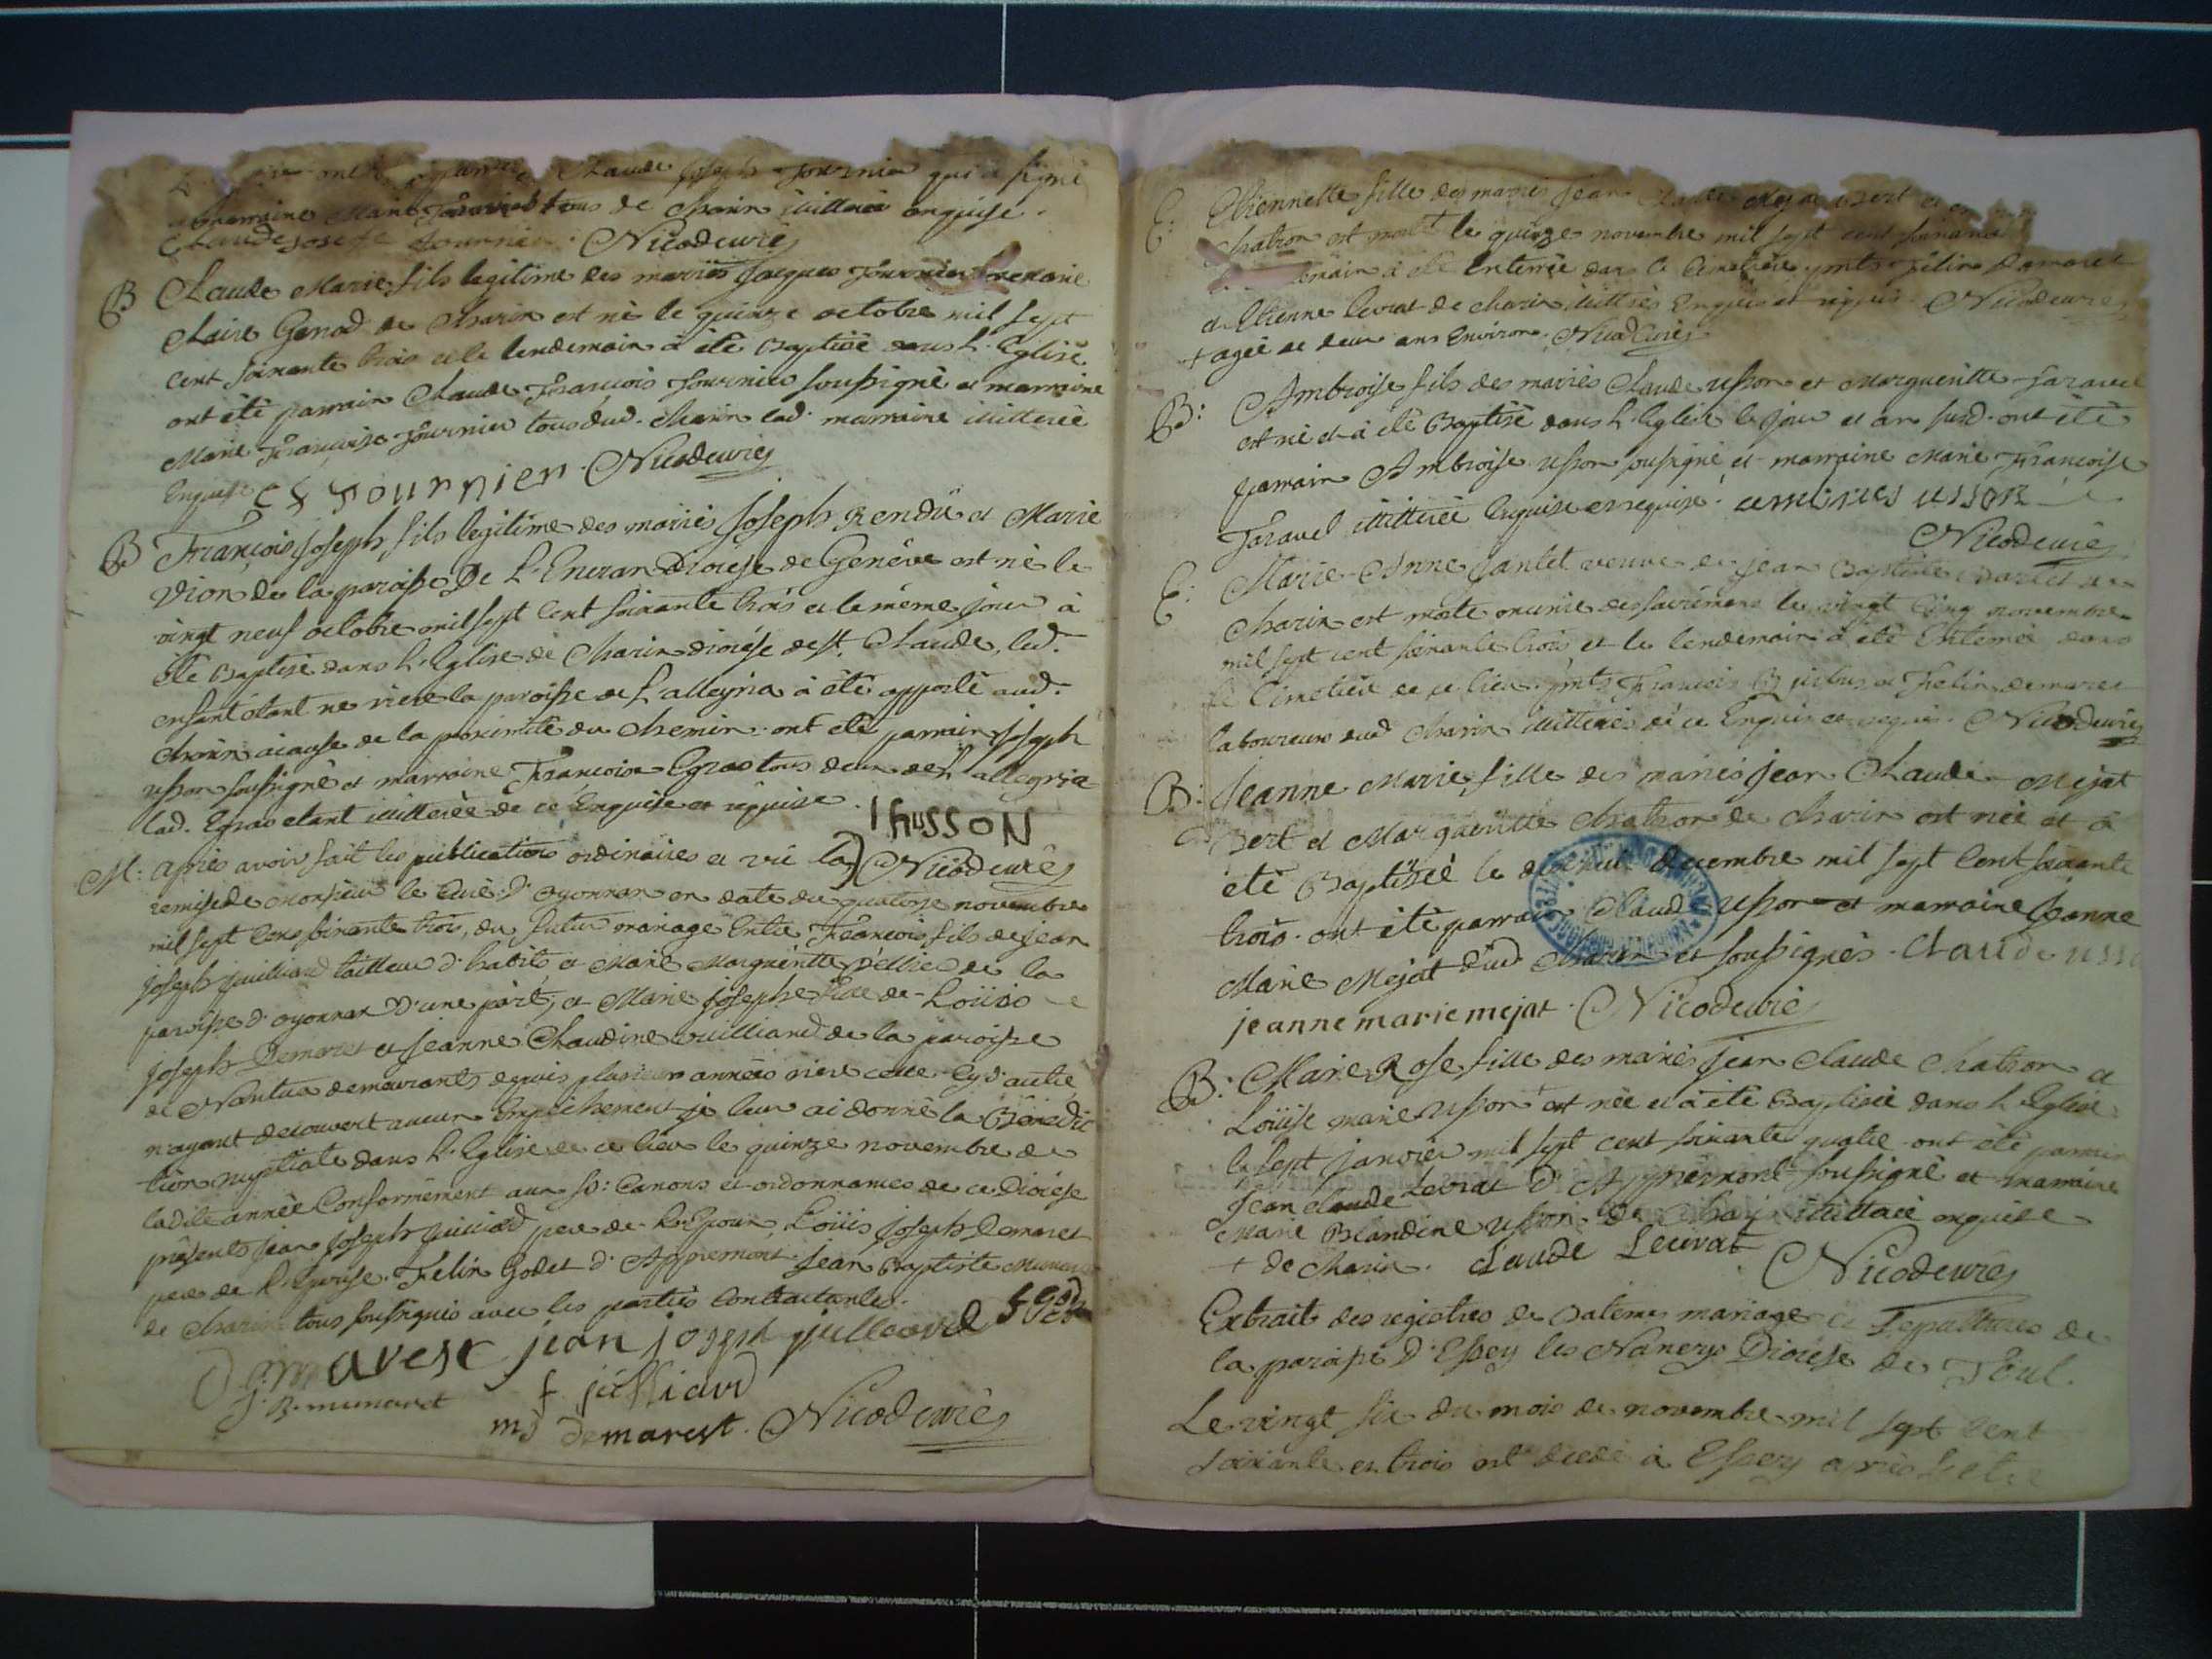 Claude Joseph Fournier qui a signé
marraine Marie tous de Charix illiteré enquise.
Claude Josefe Fournier. Nicod curé
B Claude Marie fils legitime des mariés Jacques Fournier Marie
Claire Genod de Charix est né le quinze octobre mil sept
cent soixante trois et le lendemain à été Baptisé dans l'Eglise
ont été parrain Claude François Fournier soussigné et marraine
Marie Françoise Fournier tous dud. Charix lad. marraine illiterée
Enquise CF Fournier. Nicod curé
B François Joseph fils legitime des mariés Joseph Rendu et Marie
Vion de la paroisse De L'Encran Dioiese de Genève est né le
vingt neuf octobre mil sept cent soixante trois et le même jour à
été Baptisé dans l'Eglise de Charix dioiése de St. Claude, led.
enfant étant né riere la paroisse de Lalleyria à été apporté aud.
Charix acause de la proximité du Chemin. ont été parrain Joseph
usson soussigné et marraine Françoise Egraz tous deux de Lalleyria
lad. Egraz etant illiterée de ce Enquise et requise. I husson
M: après avoir fait les publications ordinaires et vu la Nicod curé
remise de Monsieur le Curé d'oyonnax en date du quatorze novembre
mil sept cens soixante trois, du futur mariage Entre François fils de Jean
Joseph Juilliard tailleur d'habits et Marie Marguéritte de la
paroisse d'oyonnax d'une part, et Marie Josephe fille de Loüis
Joseph Demarest et Jeanne Claudine vuilliard de la paroisse
de Nantua demeurants depuis plusieurs années riere celle cy d'autre
n'ayant decouvert aucun Empéchement je leur ai donné la Bénedic
tion nuptiale dans l'Eglise de ce lieu le quinze novembre de
ladite année Conformément aux St: Canons et ordonnances de ce Dioiése
présents Jean Joseph Juilliard pere de L'Epoux, Loüis Joseph Demarest
pere de L'Epouse, Felix Godet d'Appremont Jean Baptiste Munaret
de Charix tous soussignés avec les parties Contractantes.
Demarest jean joseph juilleard f godet
J. B. munaret f juilliard
mj demarest. Nicod curé
E: Etiennette fille des mariés Jean Claude Mejat Bert et
Chatron est morte le quinze novembre mil sept cent soixante
à été Enterrée dans le Cimetière pnts Felix Demarest
et Etienne levrat de Charix illiterés Enquis et requis. Nicod curé
+ agée de deux ans Environ. Nicod curé
B: Ambroise fils des mariés Claude usson et Margueritte Jaravel
est né et à été Baptisé dans l'Eglise le jour et an susd. ont été
parrain Ambroise usson soussigné et marraine Marie Françoise
Jaravel illiterée Enquise et requise. usson
Nicod curé
E: Marie Anne Jantet veuve de jean Baptiste de
Charix est morte munie des sacrémens le vingt cinq novembre
mil sept cent soixante trois et le lendemain à été Enterrée dans
le Cimetière de ce lieu. pnts François et Felix demarest
laboureurs dud Charix illiterés de ce Enquis et requis. Nicod curé
B: Jeanne Marie fille des mariés jean Claude Mejat
Bert et Marguéritte Chatron de Charix est née et à
été Baptisée le decembre mil sept cent soixante
trois. ont été parrain Claude usson et marraine Jeanne
Marie Mejat dud Charix et soussignés. Claude usso
jeanne marie mejat. Nicod curé
B: Marie Rose fille des mariés jean Claude Chatron et
Loüise marie usson + est née et à été Baptisée dans l'Eglise
le sept janvier mil sept cent soixante quatre ont été parrain
Jean claude Levrat d'Appremont soussigné et marraine
Marie Blandine usson de Charix illiterée enquise
+ de Charix. Claude Leuvat Nicod curé
Extraits des registres de Batêmes mariages et Sepultures de
la paroisse d'Essey les Nancys Dioiése de Toul.
Le vingt six du mois de novembre mil sept cent
soixante et trois est décédé à Essey après s'etre